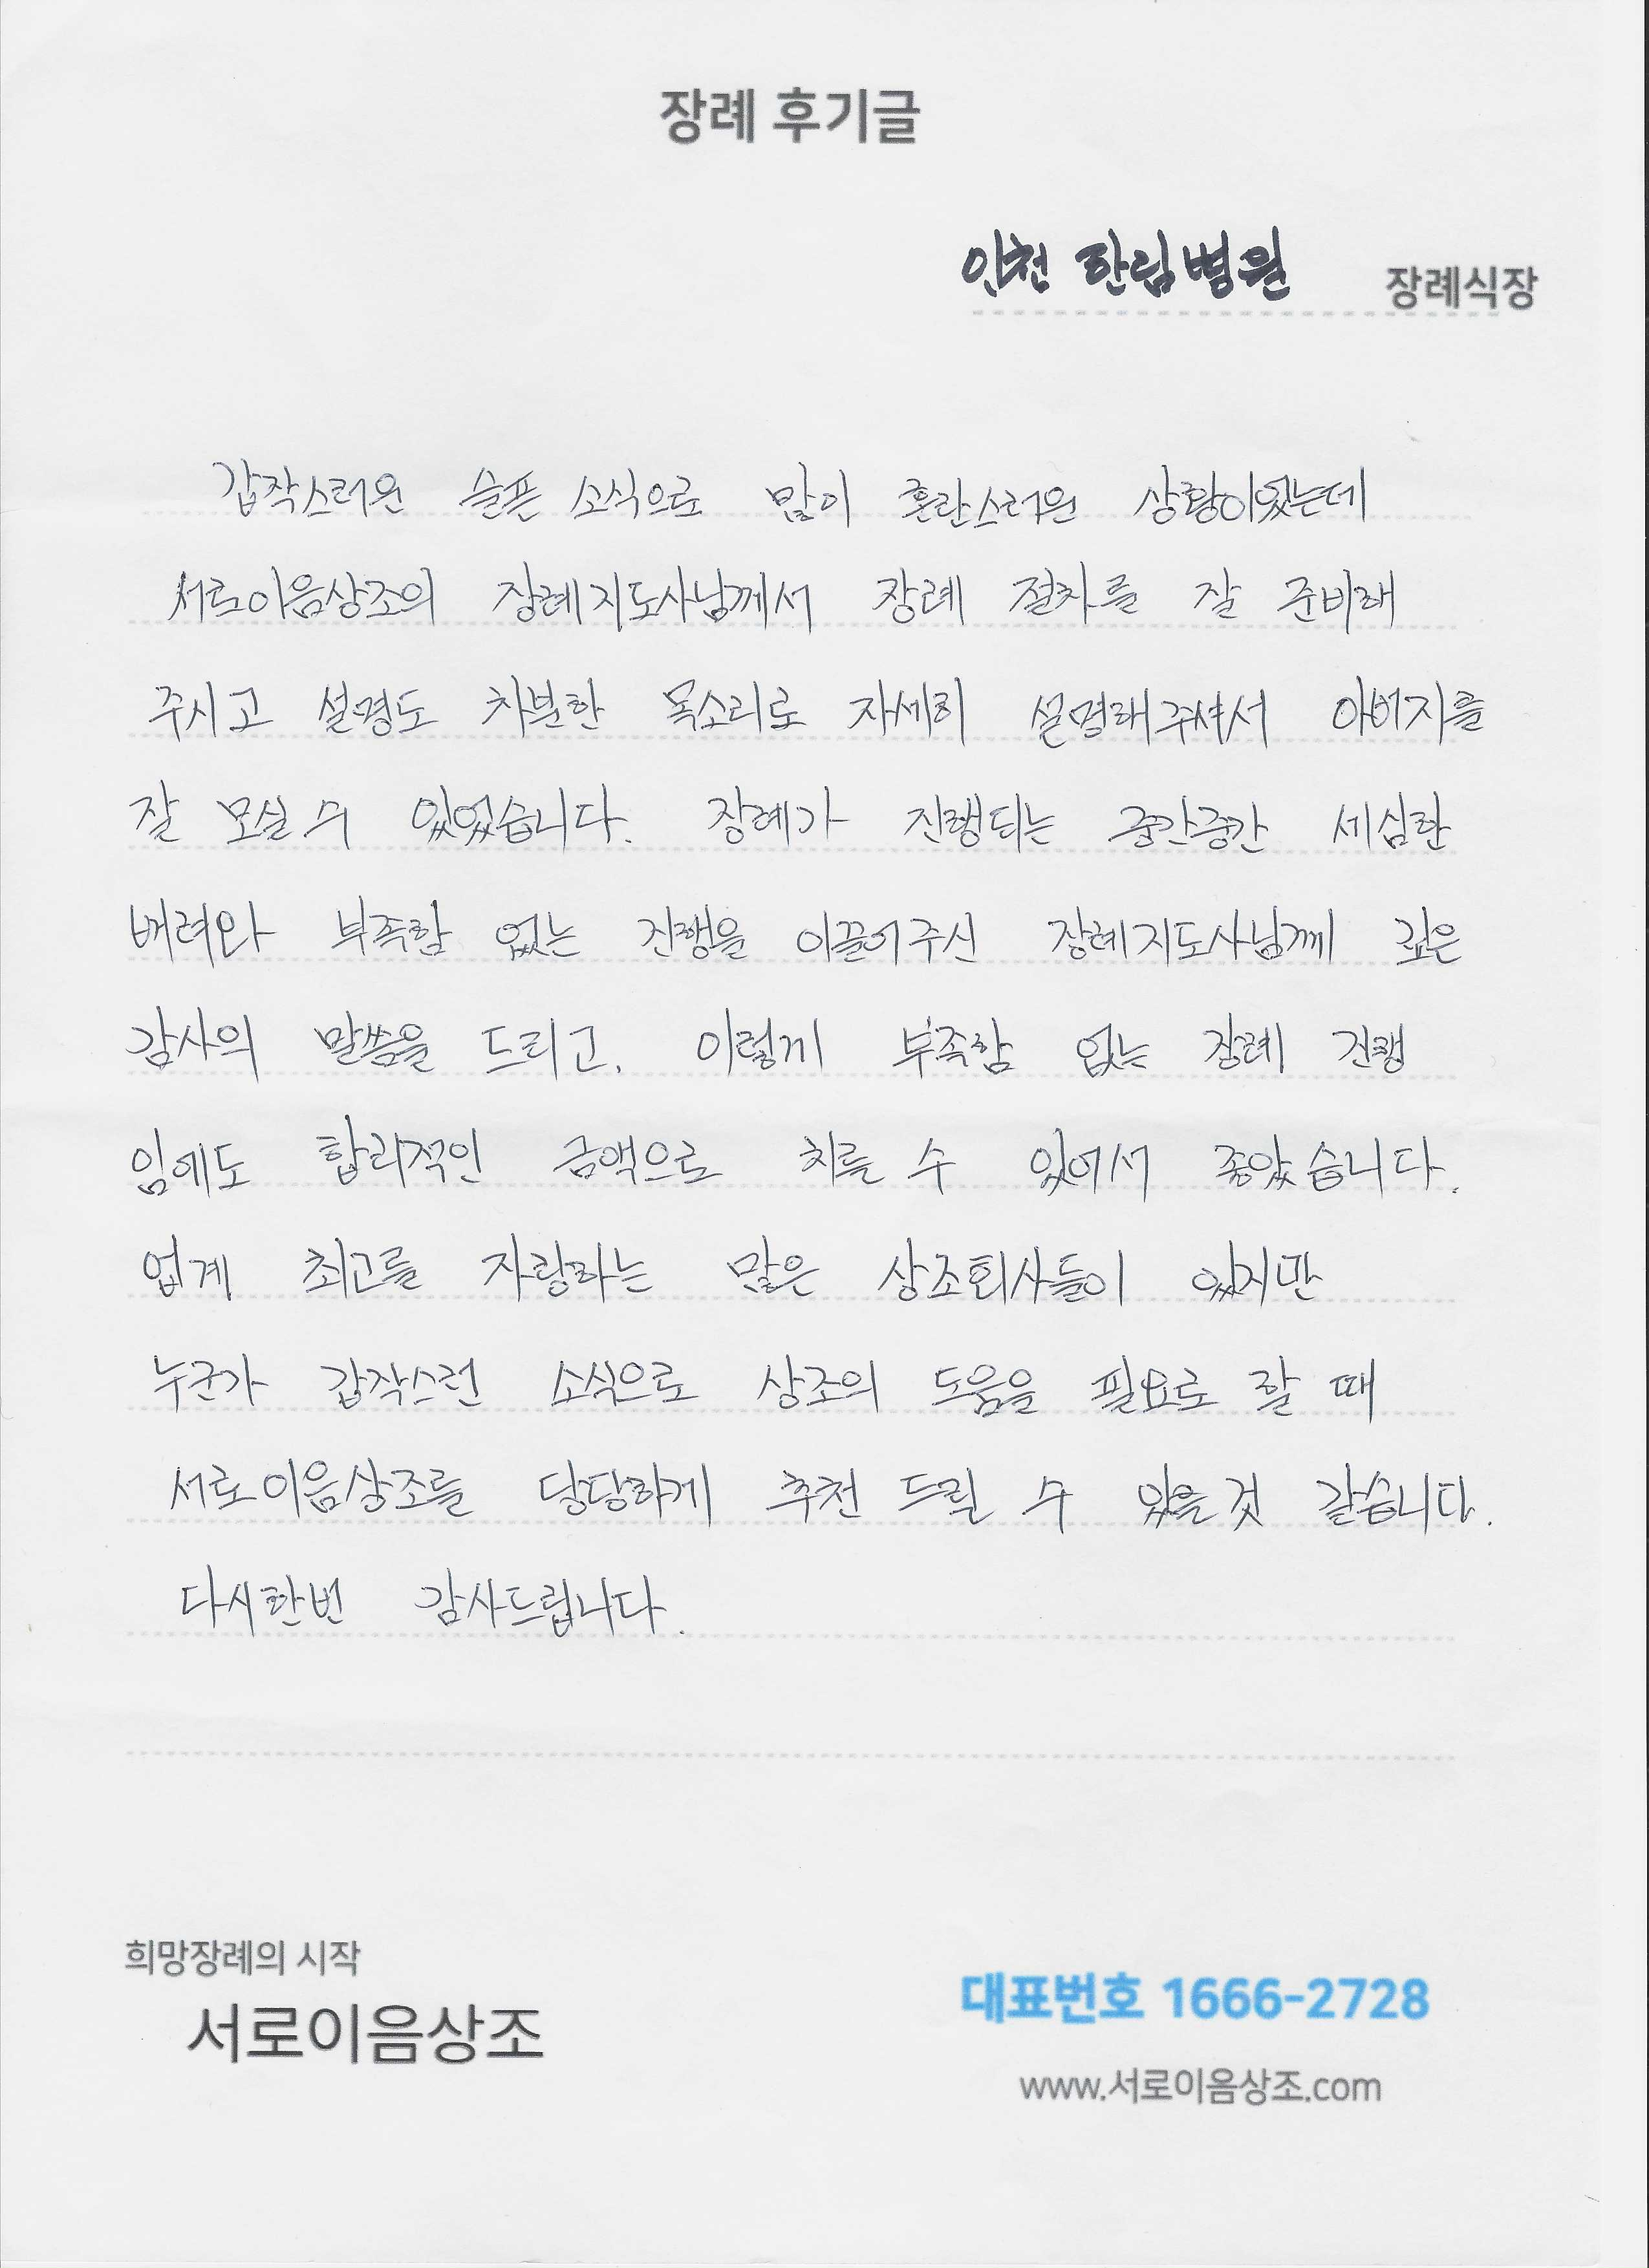 장례 후기글
인천 한림병원 장례식장
갑작스러운 슬픈 소식으로 많이 혼란스러운 상황이었는데
서로이음상조의 장례지도사님께서 장례 절차를 잘 준비해
주시고 설명도 차분한 목소리로 자세히 설명해주셔서 아버지를
잘 모실 수 있었습니다. 장례가 진행되는 중간중간 세심한
배려와 부족함 없는 진행을 이끌어주신 장례지도사님께 깊은
감사의 말씀을 드리고, 이렇게 부족함 없는 장례 진행
임에도 합리적인 금액으로 치를 수 있어서 좋았습니다.
업계 최고를 자랑하는 많은 상조회사들이 있지만
누군가 갑작스런 소식으로 상조의 도움을 필요로 할 때
서로이음상조를 당당하게 추천 드릴 수 있을것 같습니다.
다시한번 감사드립니다.
희망장례의 시작
서로이음상조
대표번호 1666-2728
www.서로이음상조.com